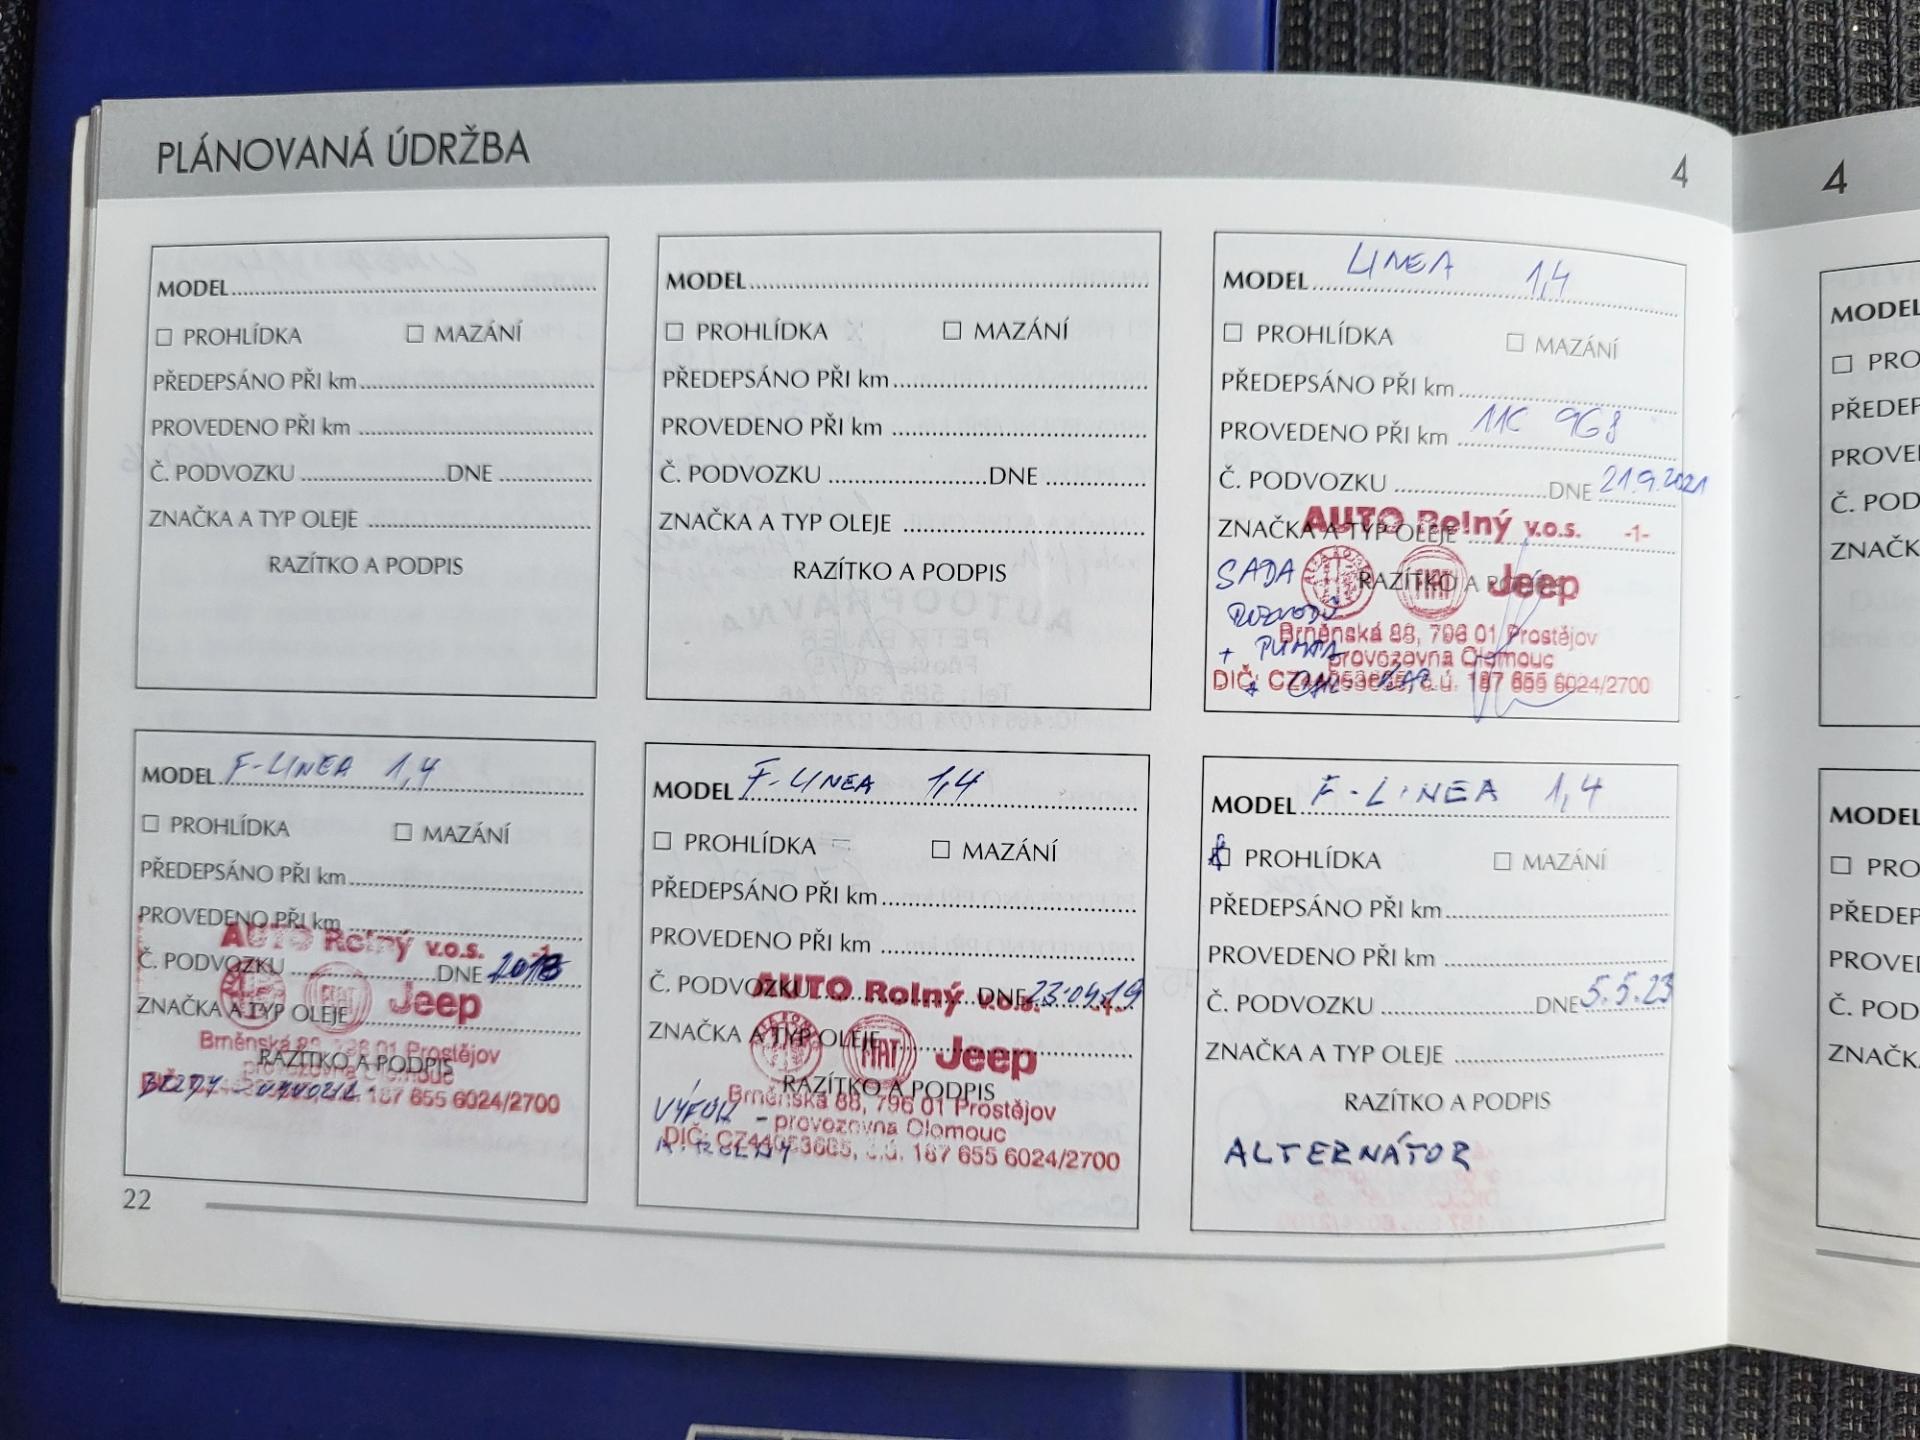 PLÁNOVANÁ ÚDRŽBA
4
MODEL
PROHLÍDKA MAZÁNÍ
PŘEDEPSÁNO PŘI km
PROVEDENO PŘI km
Č. PODVOZKU DNE
ZNAČKA A TYP OLEJE
RAZÍTKO A PODPIS
MODEL
PROHLÍDKA MAZÁNÍ
PŘEDEPSÁNO PŘI km
PROVEDENO PŘI km
Č. PODVOZKU DNE
ZNAČKA A TYP OLEJE
RAZÍTKO A PODPIS
MODEL LINEA 1,4
PROHLÍDKA MAZÁNÍ
PŘEDEPSÁNO PŘI km
PROVEDENO PŘI km 968
Č. PODVOZKU DNE 21.9.2021
AUTO Rolný v.o.s. -1-
ZNAČKA A TYP OLEJE
SADA
FIAT Jeep
RAZÍTKO A PODPIS
ROZVODŮ
Brněnská 88, 796 01 Prostějov
+ PUMPA
provozovna Olomouc
DIČ: CZ44053685, č.ú. 187 655 6024/2700
MODEL F-LINEA 1,4
PROHLÍDKA MAZÁNÍ
PŘEDEPSÁNO PŘI km
PROVEDENO PŘI km
AUTO Rolný v.o.s.
Č. PODVOZKU DNE 2018
FIAT Jeep
ZNAČKA A TYP OLEJE
Brněnská 88, 796 01 Prostějov
RAZÍTKO A PODPIS
provozovna Olomouc
BRZDY
187 655 6024/2700
22
MODEL F-LINEA 1,4
PROHLÍDKA MAZÁNÍ
PŘEDEPSÁNO PŘI km
PROVEDENO PŘI km
Č. PODVOZKU DNE 23.04.19
AUTO Rolný v.o.s.
ZNAČKA A TYP OLEJE
FIAT Jeep
RAZÍTKO A PODPIS
Brněnská 88, 796 01 Prostějov
VÝFUK
provozovna Olomouc
DIČ: CZ44053685, č.ú. 187 655 6024/2700
MODEL F-LINEA 1,4
PROHLÍDKA MAZÁNÍ
PŘEDEPSÁNO PŘI km
PROVEDENO PŘI km
Č. PODVOZKU DNE 5.5.23
ZNAČKA A TYP OLEJE
RAZÍTKO A PODPIS
ALTERNÁTOR
4
MODEL
PRO
PŘEDEP
PROVE
Č. POD
ZNAČK
MODEL
PRO
PŘEDEP
PROVE
Č. POD
ZNAČK